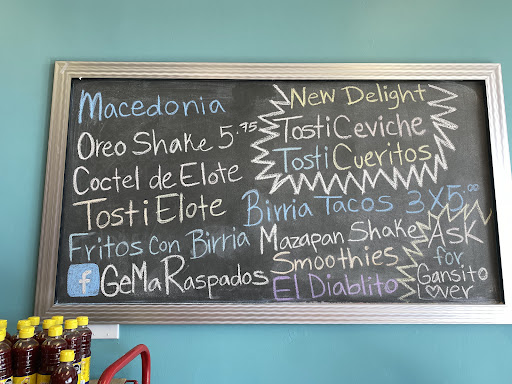 Macedonia
Oreo Shake 5.75
Coctel de Elote
Tosti Elote
Fritos con Birria
f GeMaRaspados
New Delight
Tosti Ceviche
Tosti Cueritos
Birria Tacos 3x5.00
Mazapan Shake
Smoothies
El Diablito
Ask
for
Gansito
Lover